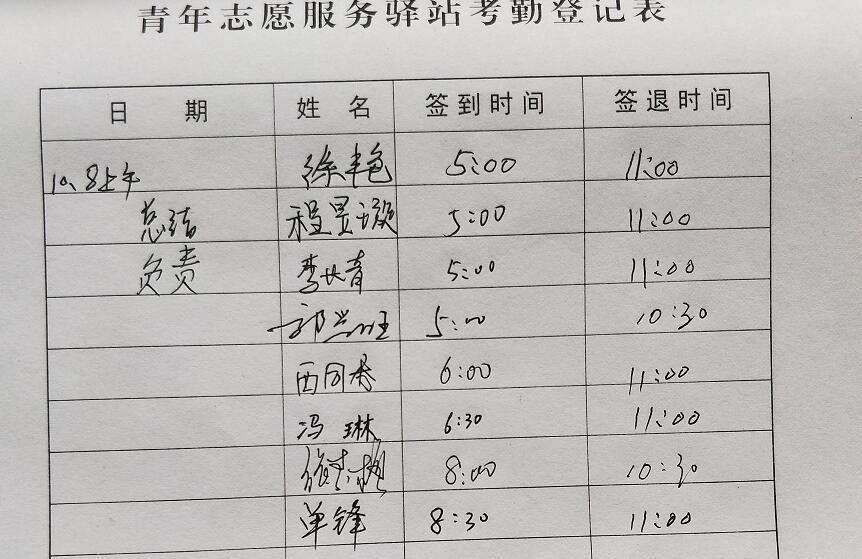 青年志愿服务驿站考勤登记表
日 期 姓 名 签到时间 签退时间
10、8上午 徐丰艳 5:00 11:00
总结 程昱璇 5:00 11:00
负责 李长青 5:00 11:00
郭 5:00 10:30
西同春 6:00 11:00
冯琳 6:30 11:00
8:00 10:30
单锋 8:30 11:00